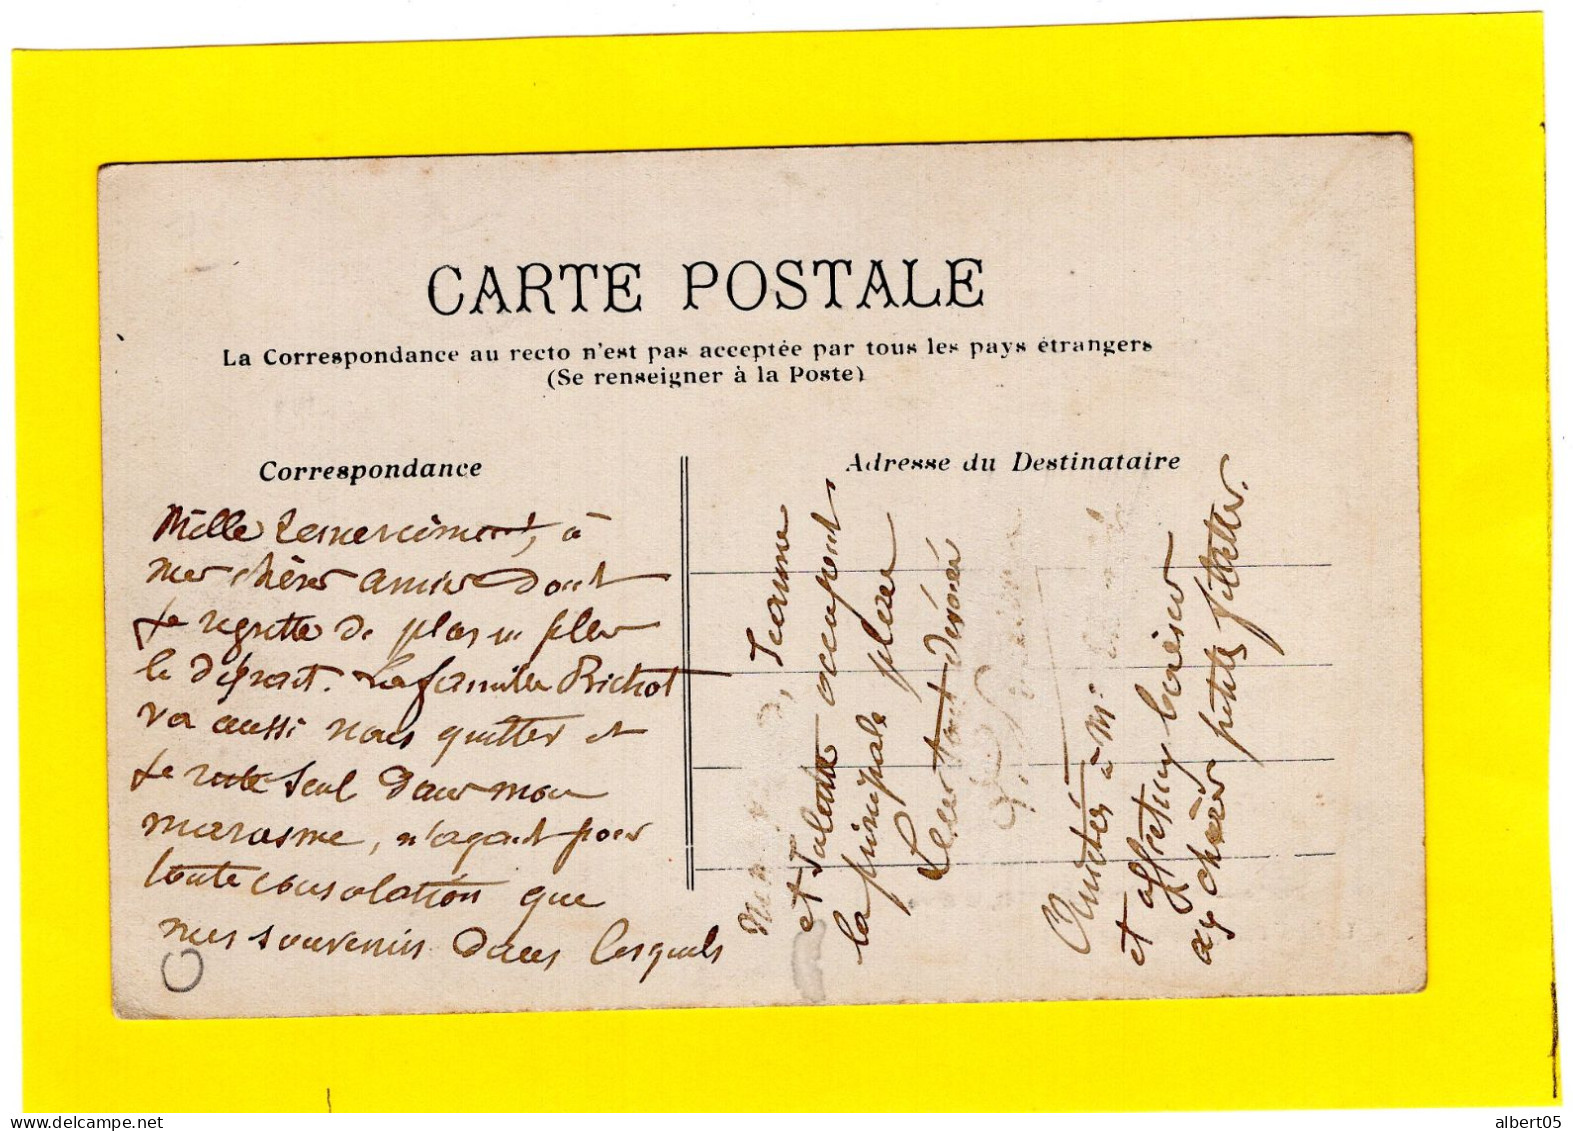 CARTE POSTALE
La Correspondance au recto n'est pas acceptée par tous les pays étrangers
(Se renseigner à la Poste)
Correspondance
Adresse du Destinataire
Mille remerciments, à
mes chères amies dont
je regrette de plus en plus
le départ. La famille Richot
va aussi nous quitter et
je reste seul dans mon
marasme, n'ayant pour
toute consolation que
mes souvenirs dans lesquels
Jeanne
et Juliette occupent
la principale place
Leur tout dévoué
Amitiés à M.
et affectueux baisers
aux chères petites fillettes.
albert05